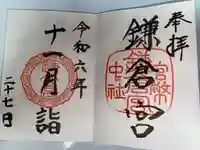 奉拝
鎌倉宮
官幣中社
令和六年
十一月詣
二十七日